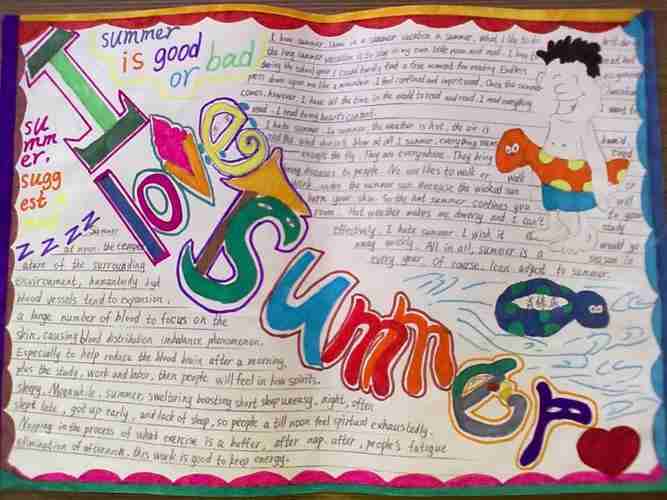 summer
is good
or bad
I love Summer
I love summer. When is a summer vacation in summer, what I like to do
the long summer vacation is to stay in my own little room and read.
during the school year I could hardly find a free moment for reading. Endless
press down upon me like a mountain. I feel confined and imprisoned. Once the summer
comes, however, I have all the time in the world to read and read. I read everything
want to
read. I read to my heart's content.
I hate summer. In summer, the weather is hot, the air is
humid,
and the wind doesn't blow at all
summer, everything
except the fly. They are everywhere. They bring
diseases to people. No one likes to walk or
work under the summer sun. Because the wicked sun
burn your skin. So the hot summer confines you
to your
room. Hot weather makes me drowsy and I can't
study
effectively. I hate summer. I wish it
would go
away quickly. All in all, summer is a
season in
every year. Of course, I can adjust to summer.
su
mm
er.
sugg
est
ZZZZ
Summer
at noon, the temper
ature of the surrounding
environment, humanbody
blood vessels tend to expansion,
a large number of blood to focus on the
skin, causing blood distribution imbalance phenomenon.
Especially to help reduce the blood brain, after a morning,
plus the study, work and labor, then people will feel in low spirits.
sleepy. Meanwhile, summer, sweltering
short sleep uneasy, night, often
slept late, got up early, and lack of sleep, so people a till noon feel spiritual exhaustedly.
Napping in the process of what exercise is a buffer, after nap, after, people's fatigue
elimination of
this work is good to keep energy.